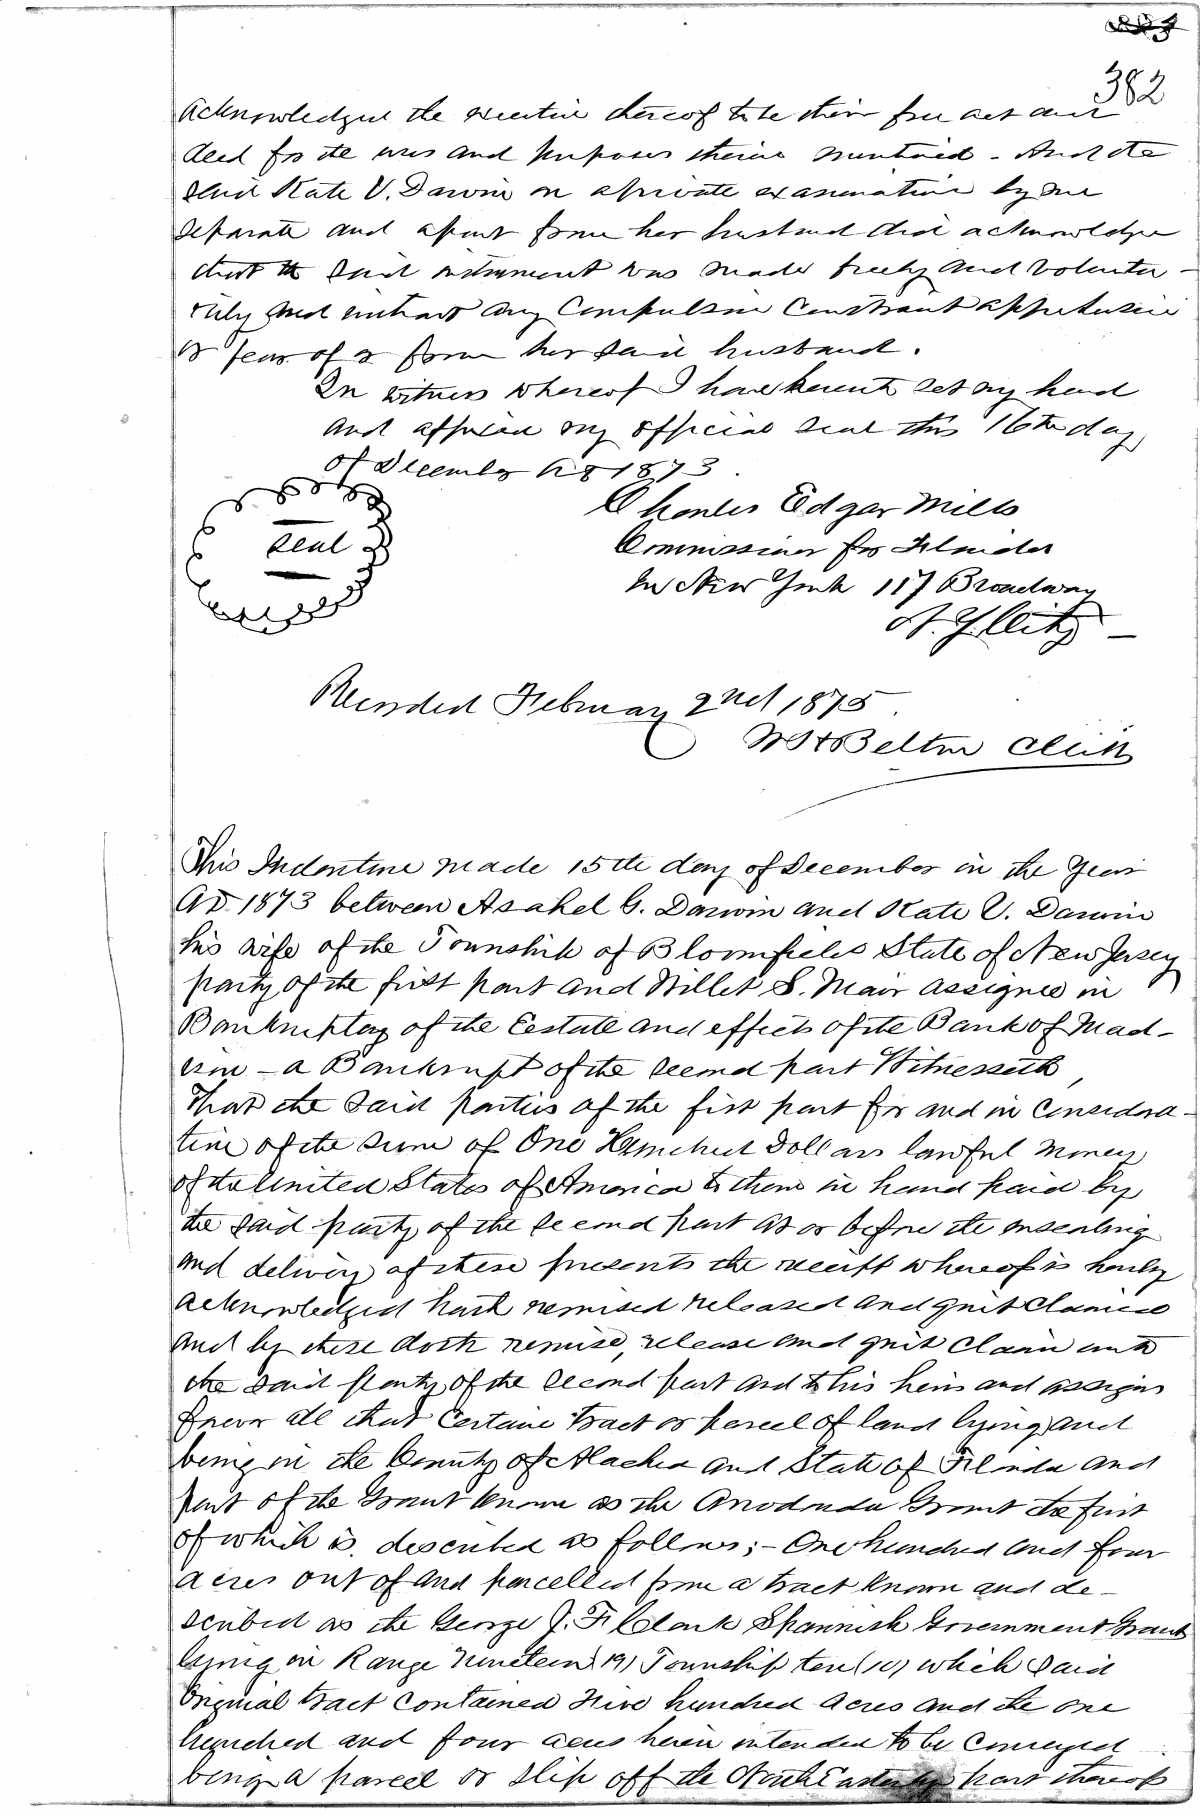 382
acknowledged the execution thereof to be their free act and
deed for the uses and purposes therein mentioned - And the
said Kate V. Darwin on a private examination by me
separate and apart from her husband did acknowledge
that the said instrument was made freely and volunta-
rily and without any Compulsion Constraint apprehension
or fear of or from her said husband.
In witness whereof I have hereunto set my hand
and affixed my official seal this 16th day
of December AD 1873.
Seal
Charles Edgar Mills
Commissioner for Florida
in New York 117 Broadway
N.Y. City -
Recorded February 2nd 1875.
Belton Clerk
This Indenture made 15th day of December in the Year
AD. 1873 between Asahel G. Darwin and Kate V. Darwin
his wife of the Township of Bloomfield State of New Jersey
party of the first part and Willet S. Mair assignee in
Bankruptcy of the Eestate and effects of the Bank of Mad-
ison - a Bankrupt of the second part Witnesseth,
That the said parties of the first part for and in Considera-
tion of the sum of One Hundred Dollars lawful money
of the United States of America to them in hand paid by
the said party of the second part at or before the ensealing
and delivery of these presents the receipt whereof is hereby
acknowledged hath remised released and quit claimed
and by these doth remise, release and quit claim unto
the said party of the second part and to his heirs and assigns
forever all that Certain tract or parcel of land lying and
being in the County of Alachua and State of Florida and
part of the Grant known as the Arredondo Grant the first
of which is described as follows; - One hundred and four
acres out of and parcelled from a tract known and de-
scribed as the George J. F. Clark Spannish Government Grant
lying in Range Nineteen (19) Township ten (10) which said
Original tract contained Five hundred acres and the one
hundred and four acres herein intended to be Conveyed
being a parcel or slip off the North Easterly part thereof